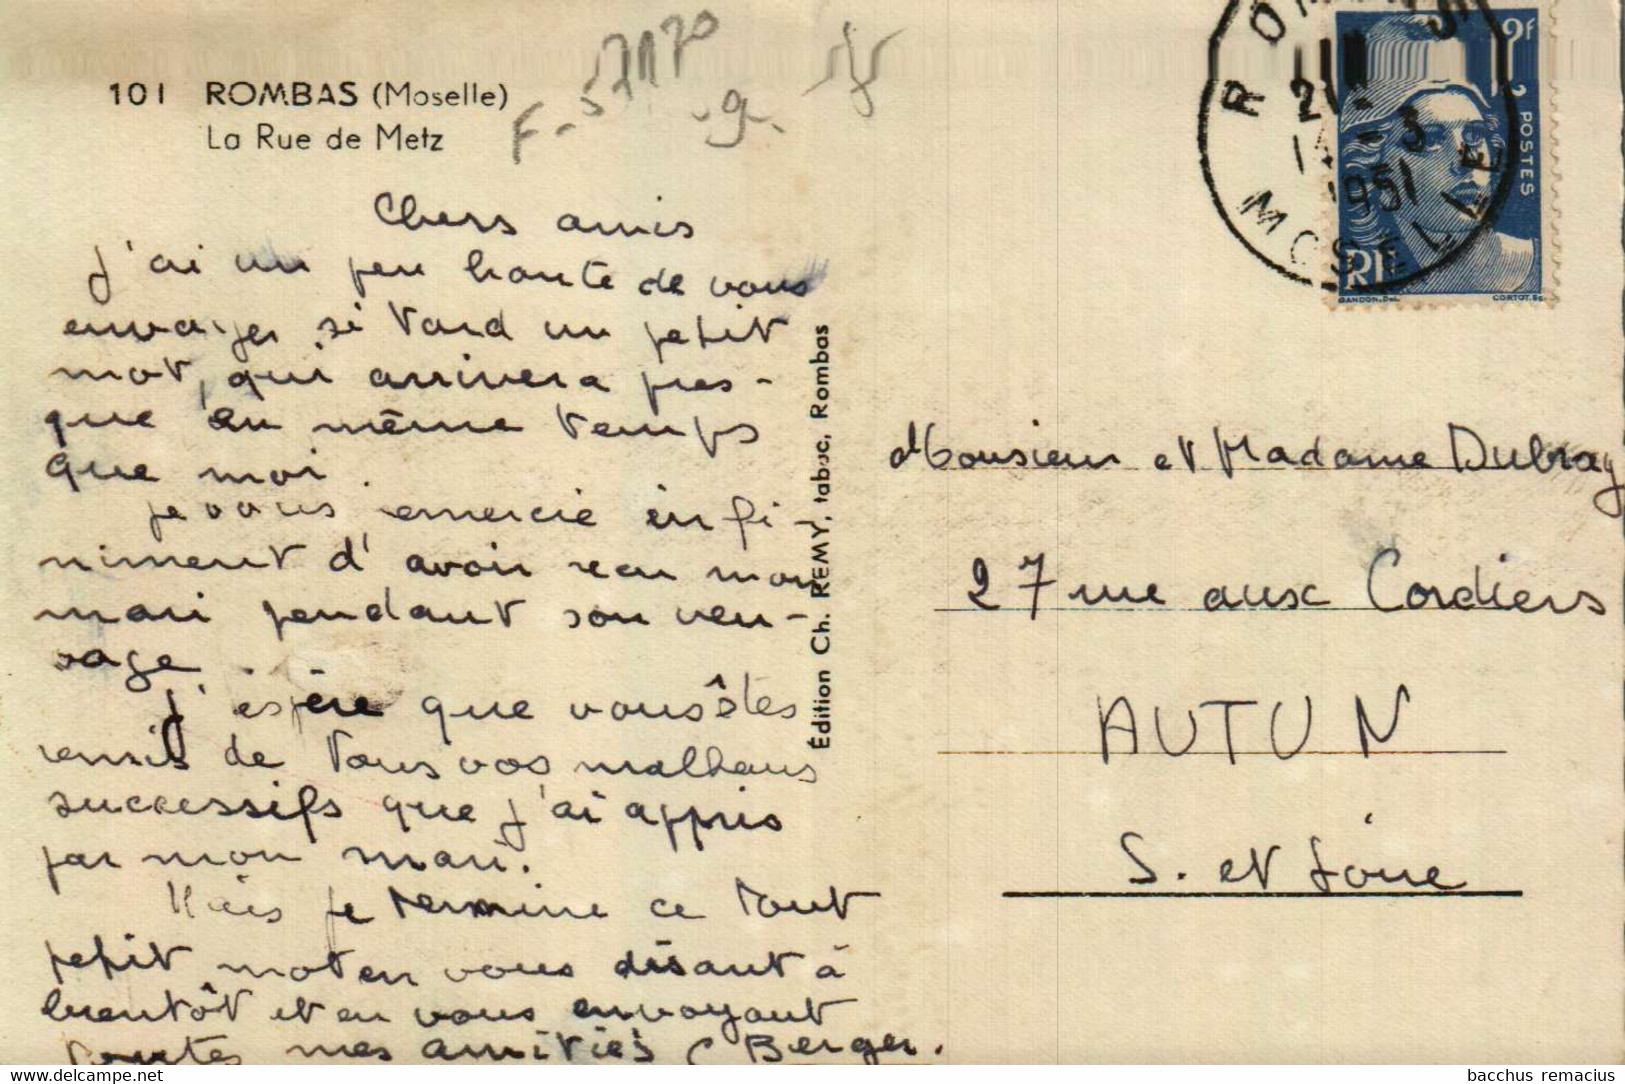 101 ROMBAS (Moselle)
La Rue de Metz
F-57170
Chers amis
J'ai un peu honte de vous
envoyer si tard un petit
mot, qui arrivera pres-
que en même temps
que moi.
Je vous remercie infi-
niment d'avoir reçu mon
mari pendant son veu-
vage.
J'espère que vous êtes
remis de tous vos malheurs
successifs que j'ai appris
par mon mari.
Mais je termine ce tout
petit mot en vous disant à
bientôt et en vous envoyant
toutes mes amitiés C Berger.
Édition Ch. REMY, tabac, Rombas
ROMBAS
21
14-3
1951
MOSELLE
12F
POSTES
RF
GANDON.Del.
CORTOT.Sc.
Monsieur et Madame Dubray
27 rue aux Cordiers
AUTUN
S. et Loire
bacchus remacius